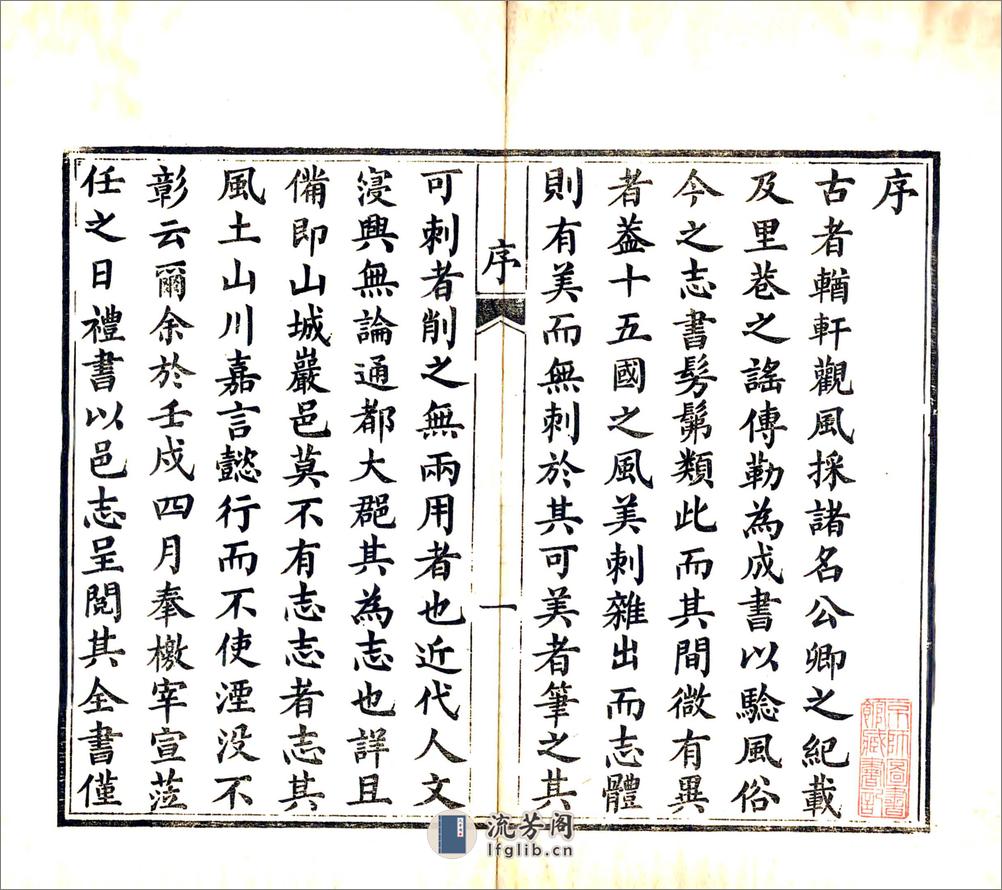 序
古者輶軒觀風採諸名公卿之紀載
及里巷之謠傳勒為成書以驗風俗
今之志書髣髴類此而其間微有異
者葢十五國之風美刺雜出而志體
則有美而無刺於其可美者筆之其
序
一
可刺者削之無兩用者也近代人文
寖興無論通都大郡其為志也詳且
備即山城巖邑莫不有志志者志其
風土山川嘉言懿行而不使湮没不
彰云爾余於壬戍四月奉檄宰宣蒞
任之日禮書以邑志呈閱其全書僅
京師圖書
館藏書記
流芳阁
lfglib.cn